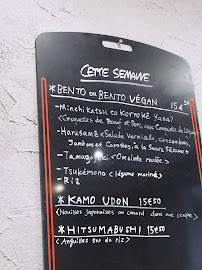 CETTE SEMAINE
* BENTO ou BENTO VÉGAN 15€
- Minchikatsu to Korrokke yasai
<Croquettes de Bœuf et Porc, aux Croquette de Légumes>
- Harusame <Salade vermicelle, concombres,
Jambons et Carottes, à la Sauce Sésame>
- Tamagoyaki <Omelette roulée>
- Tsukémono <légume mariné>
- Riz
* KAMO UDON 15€50
<Nouilles japonaises au canard dans une soupe>
* HITSUMABUSHI 15€50
<Anguilles sur du riz>